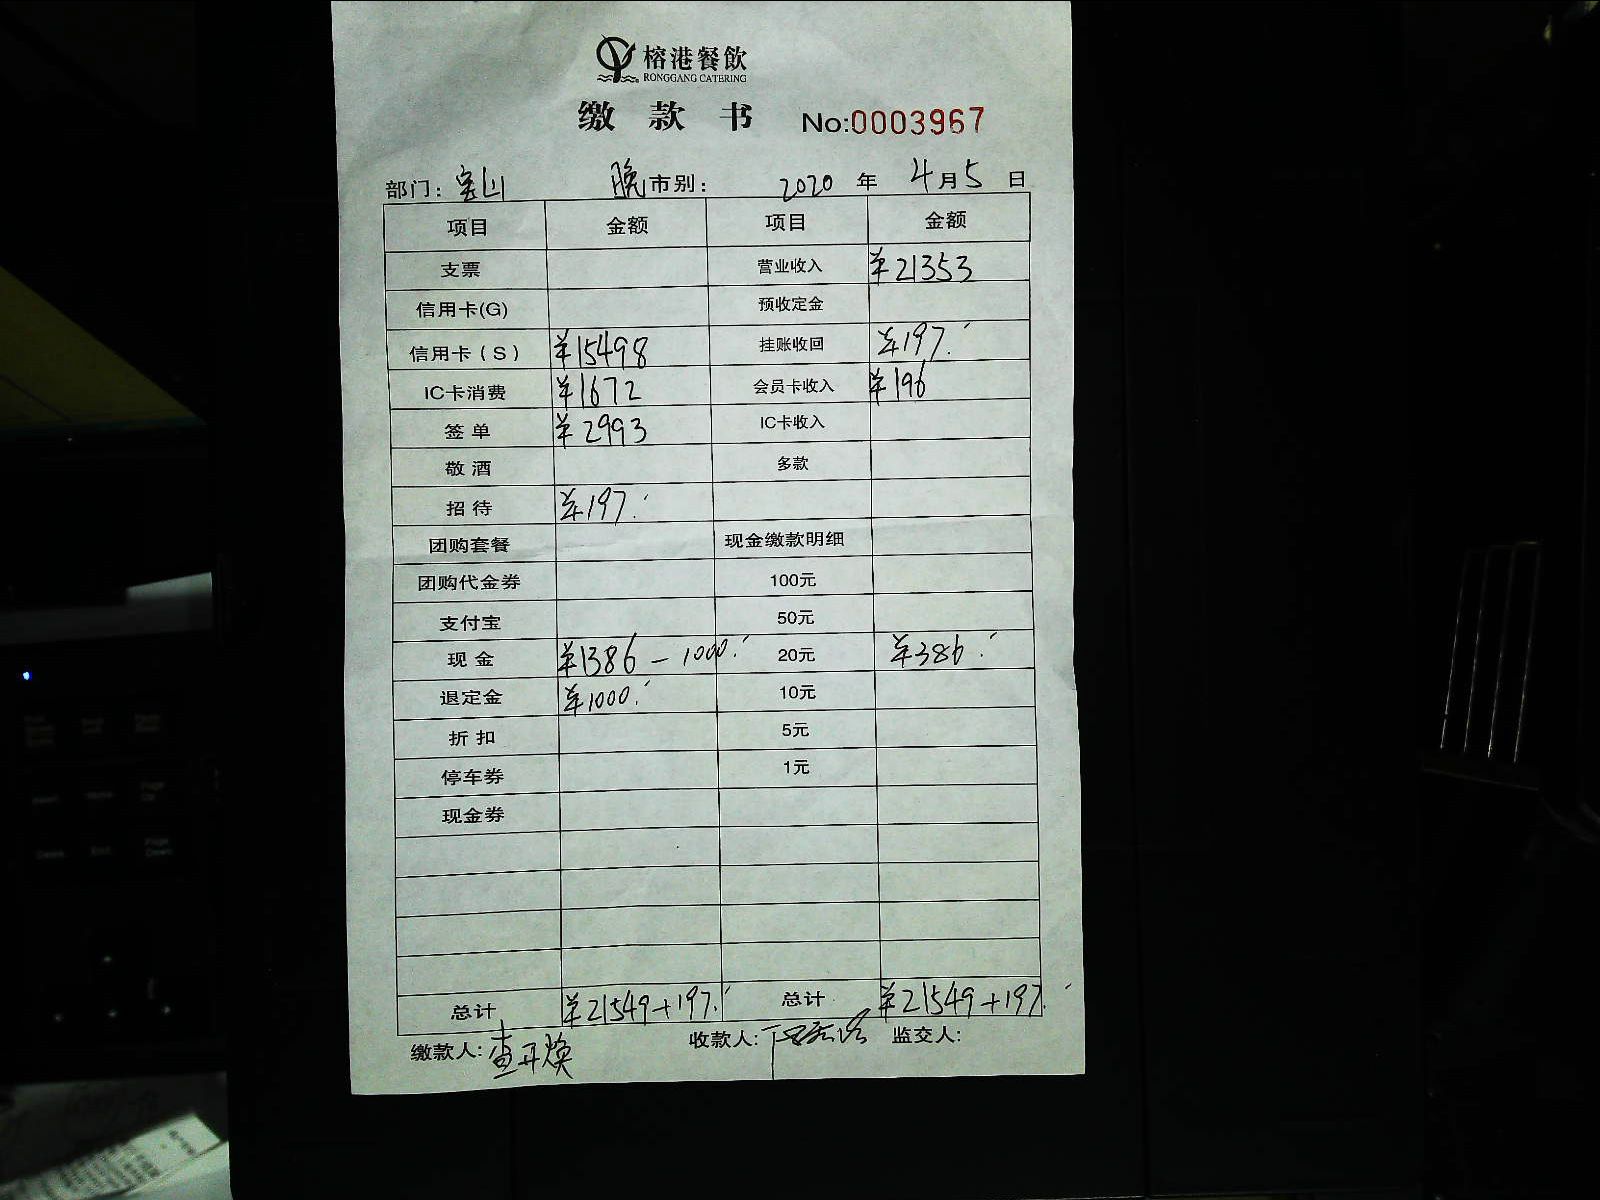 榕港餐飲
RONGGANG CATERING
缴款书 No:0003967
部门: 宝山 晚市别: 2020年4月5日
项目 金额 项目 金额
支票 营业收入 ¥21353
信用卡(G) 预收定金
信用卡(S) ¥15498 挂账收回 ¥197.
IC卡消费 ¥1672 会员卡收入 ¥196
签单 ¥2993 IC卡收入
敬酒 多款
招待 ¥197.
团购套餐 现金缴款明细
团购代金券 100元
支付宝 50元
现金 ¥1386-1000. 20元 ¥386.
退定金 ¥1000. 10元
折扣 5元
停车券 1元
现金券
总计 ¥21549+197. 总计 ¥21549+197.
缴款人: 收款人: 监交人: